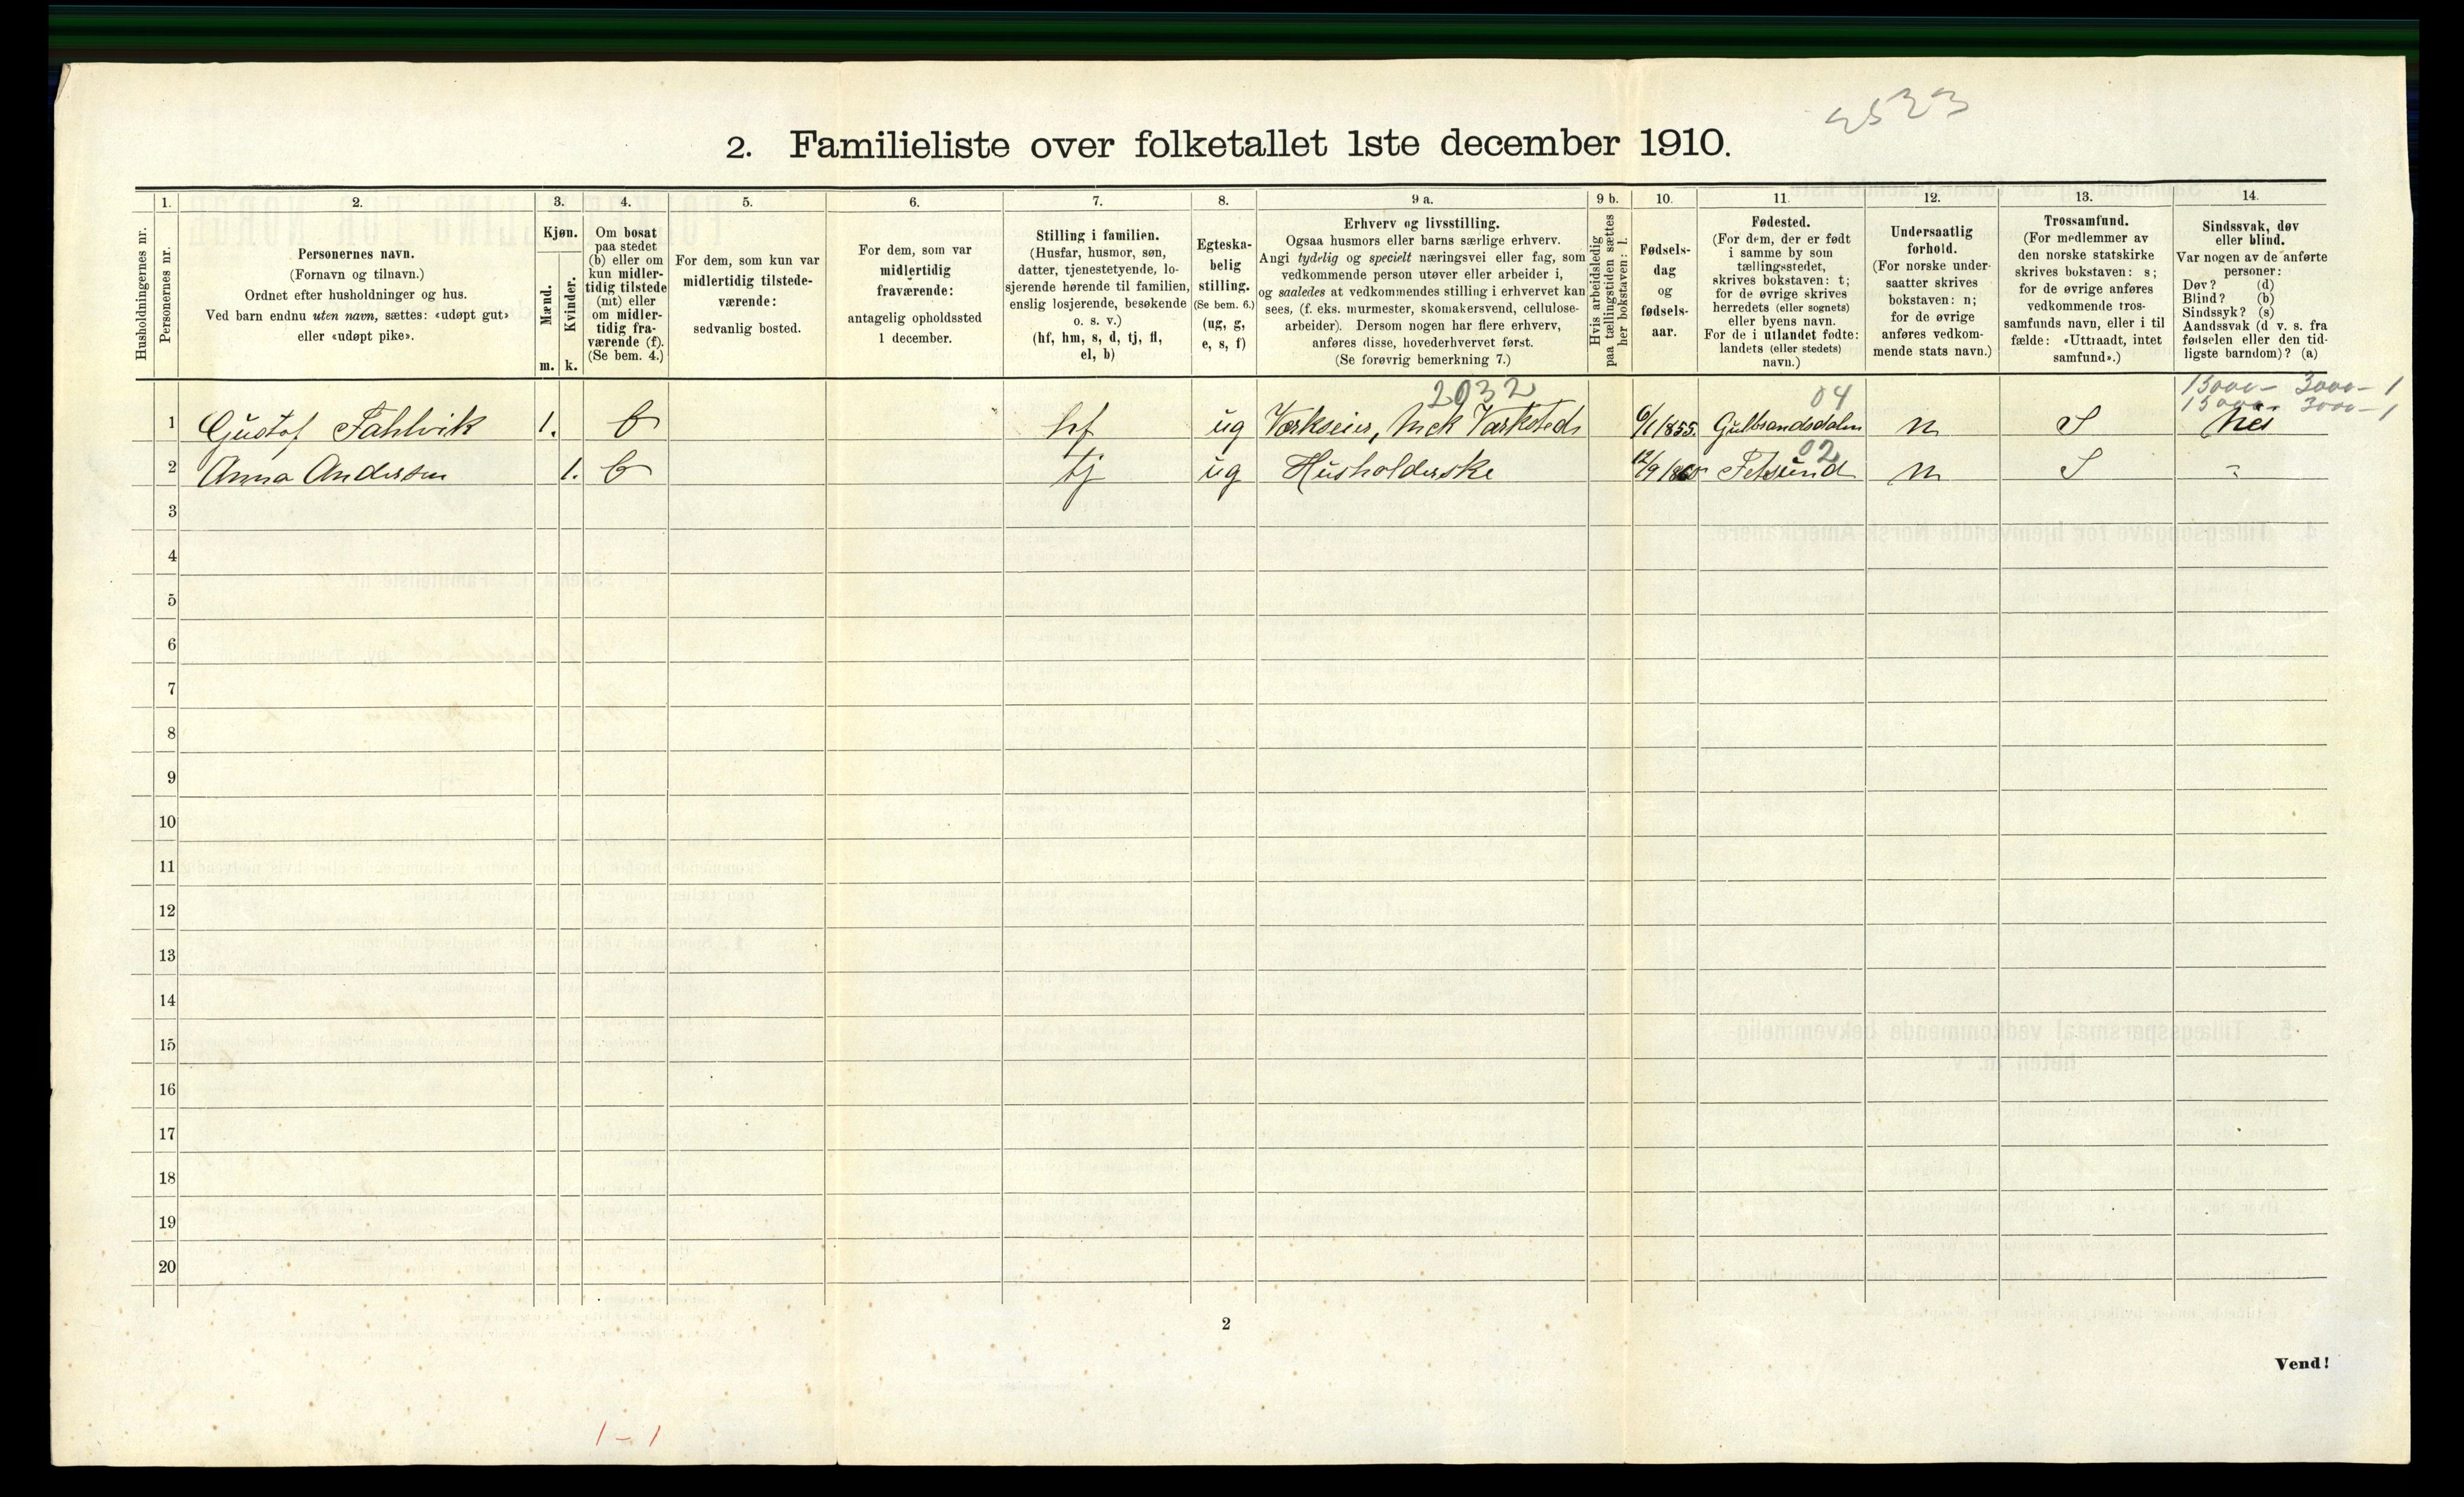 2523
2. Familieliste over folketallet 1ste december 1910.
Husholdningernes nr.
1.
Personernes nr.
2.
Personernes navn.
(Fornavn og tilnavn.)
Ordnet efter husholdninger og hus.
Ved barn endnu uten navn, sættes: «udøpt gut»
eller «udøpt pike».
3.
Kjøn.
Mænd.
Kvinder.
m. k.
4.
Om bosat
paa stedet
(b) eller om
kun midler-
tidig tilstede
(mt) eller
om midler-
tidig fra-
værende (f).
(Se bem. 4.)
5.
For dem, som kun var
midlertidig tilstede-
værende:
sedvanlig bosted.
6.
For dem, som var
midlertidig
fraværende:
antagelig opholdssted
1 december.
7.
Stilling i familien.
(Husfar, husmor, søn,
datter, tjenestetyende, lo-
sjerende hørende til familien,
enslig losjerende, besøkende
o. s. v.)
(hf, hm, s, d, tj, fl,
el, b)
8.
Egteska-
belig
stilling.
(Se bem. 6.)
(ug, g,
e, s, f)
9 a.
Erhverv og livsstilling.
Ogsaa husmors eller barns særlige erhverv.
Angi tydelig og specielt næringsvei eller fag, som
vedkommende person utøver eller arbeider i,
og saaledes at vedkommendes stilling i erhvervet kan
sees, (f. eks. murmester, skomakersvend, cellulose-
arbeider). Dersom nogen har flere erhverv,
anføres disse, hovederhvervet først.
(Se forøvrig bemerkning 7.)
9 b.
Hvis arbeidsledig
paa tællingstiden sættes
her bokstaven: l.
10.
Fødsels-
dag
og
fødsels-
aar.
11.
Fødested.
(For dem, der er født
i samme by som
tællingsstedet,
skrives bokstaven: t;
for de øvrige skrives
herredets (eller sognets)
eller byens navn.
For de i utlandet fødte:
landets (eller stedets)
navn.)
12.
Undersaatlig
forhold.
(For norske under-
saatter skrives
bokstaven: n;
for de øvrige
anføres vedkom-
mende stats navn.)
13.
Trossamfund.
(For medlemmer av
den norske statskirke
skrives bokstaven: s;
for de øvrige anføres
vedkommende tros-
samfunds navn, eller i til
fælde: «Uttraadt, intet
samfund».)
14.
Sindssvak, døv
eller blind.
Var nogen av de anførte
personer:
Døv? (d)
Blind? (b)
Sindssyk? (s)
Aandssvak (d v. s. fra
fødselen eller den tid-
ligste barndom)? (a)
2032 04 15000 - 3000 - 1
15000 - 3000 - 1
1 Gustof Fahlvik 1. b hf ug Værkseier, Mek Værksteds 6/1 1855. Gulbrandsdalen n S Nei
02
2 Anna Andersen 1. b tj ug Husholderske 12/9 Fetsund n S "
3
4
5
6
7
8
9
10
11
12
13
14
15
16
17
18
19
20
2
Vend!
1 - 1